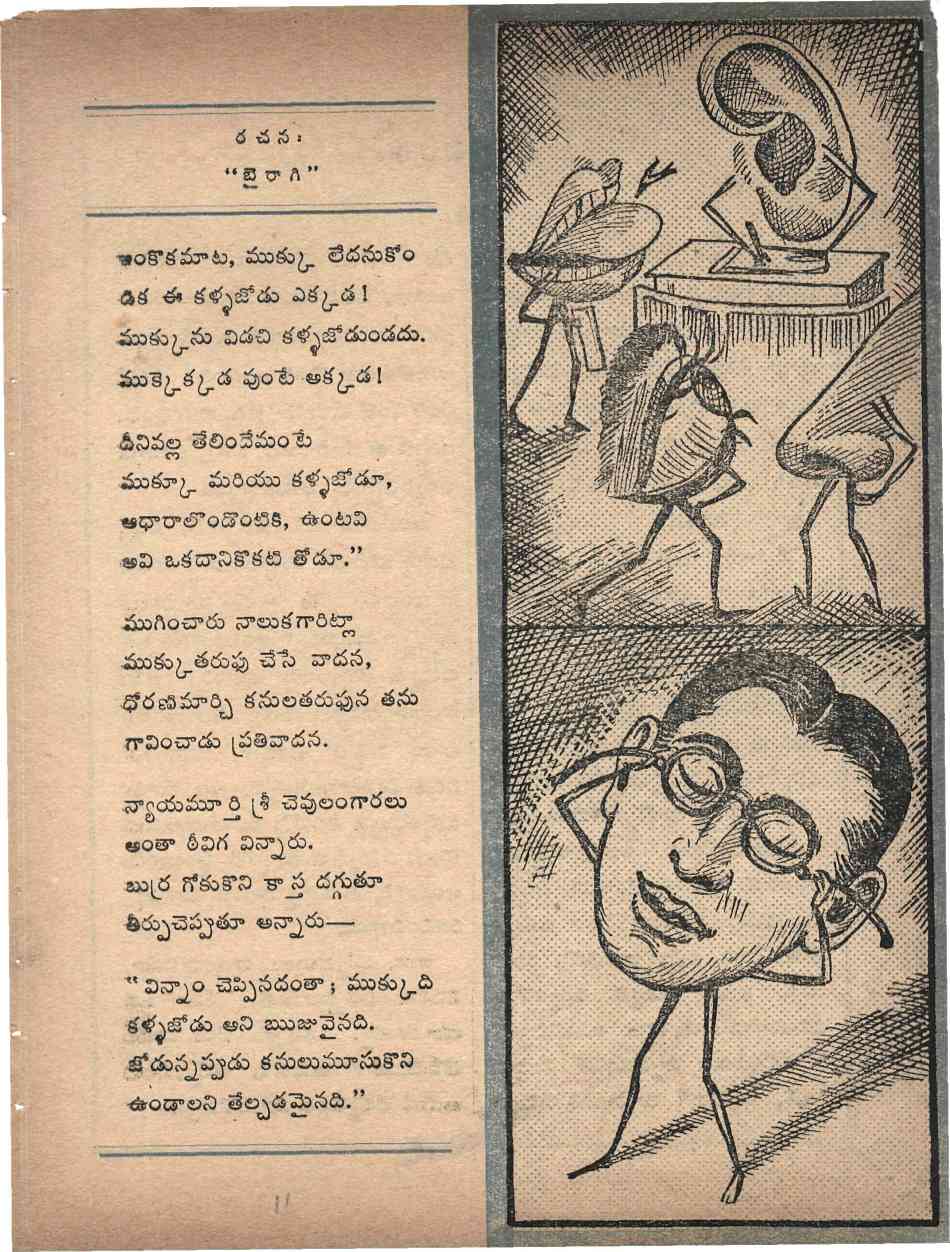 రచన:
“బైరాగి”
ఇంకొకమాట, ముక్కు లేదనుకోం
డిక ఈ కళ్ళజోడు ఎక్కడ!
ముక్కును విడచి కళ్ళజోడుండదు.
ముక్కెక్కడ వుంటే అక్కడ!
దీనివల్ల తేలిందేమంటే
ముక్కూ మరియు కళ్ళజోడూ,
ఆధారాలొండొంటికి, ఉంటవి
అవి ఒకదానికొకటి తోడూ.”
ముగించారు నాలుకగారిట్లా
ముక్కుతరుఫు చేసే వాదన,
ధోరణిమార్చి కనులతరుఫున తను
గావించాడు ప్రతివాదన.
న్యాయమూర్తి శ్రీ చెవులంగారలు
అంతా ఠీవిగ విన్నారు.
బుర్ర గోకుకొని కాస్త దగ్గుతూ
తీర్పుచెప్పుతూ అన్నారు—
“విన్నాం చెప్పినదంతా; ముక్కుది
కళ్ళజోడు అని ఋజువైనది.
జోడున్నప్పుడు కనులుమూసుకొని
ఉండాలని తేల్చడమైనది.”
11